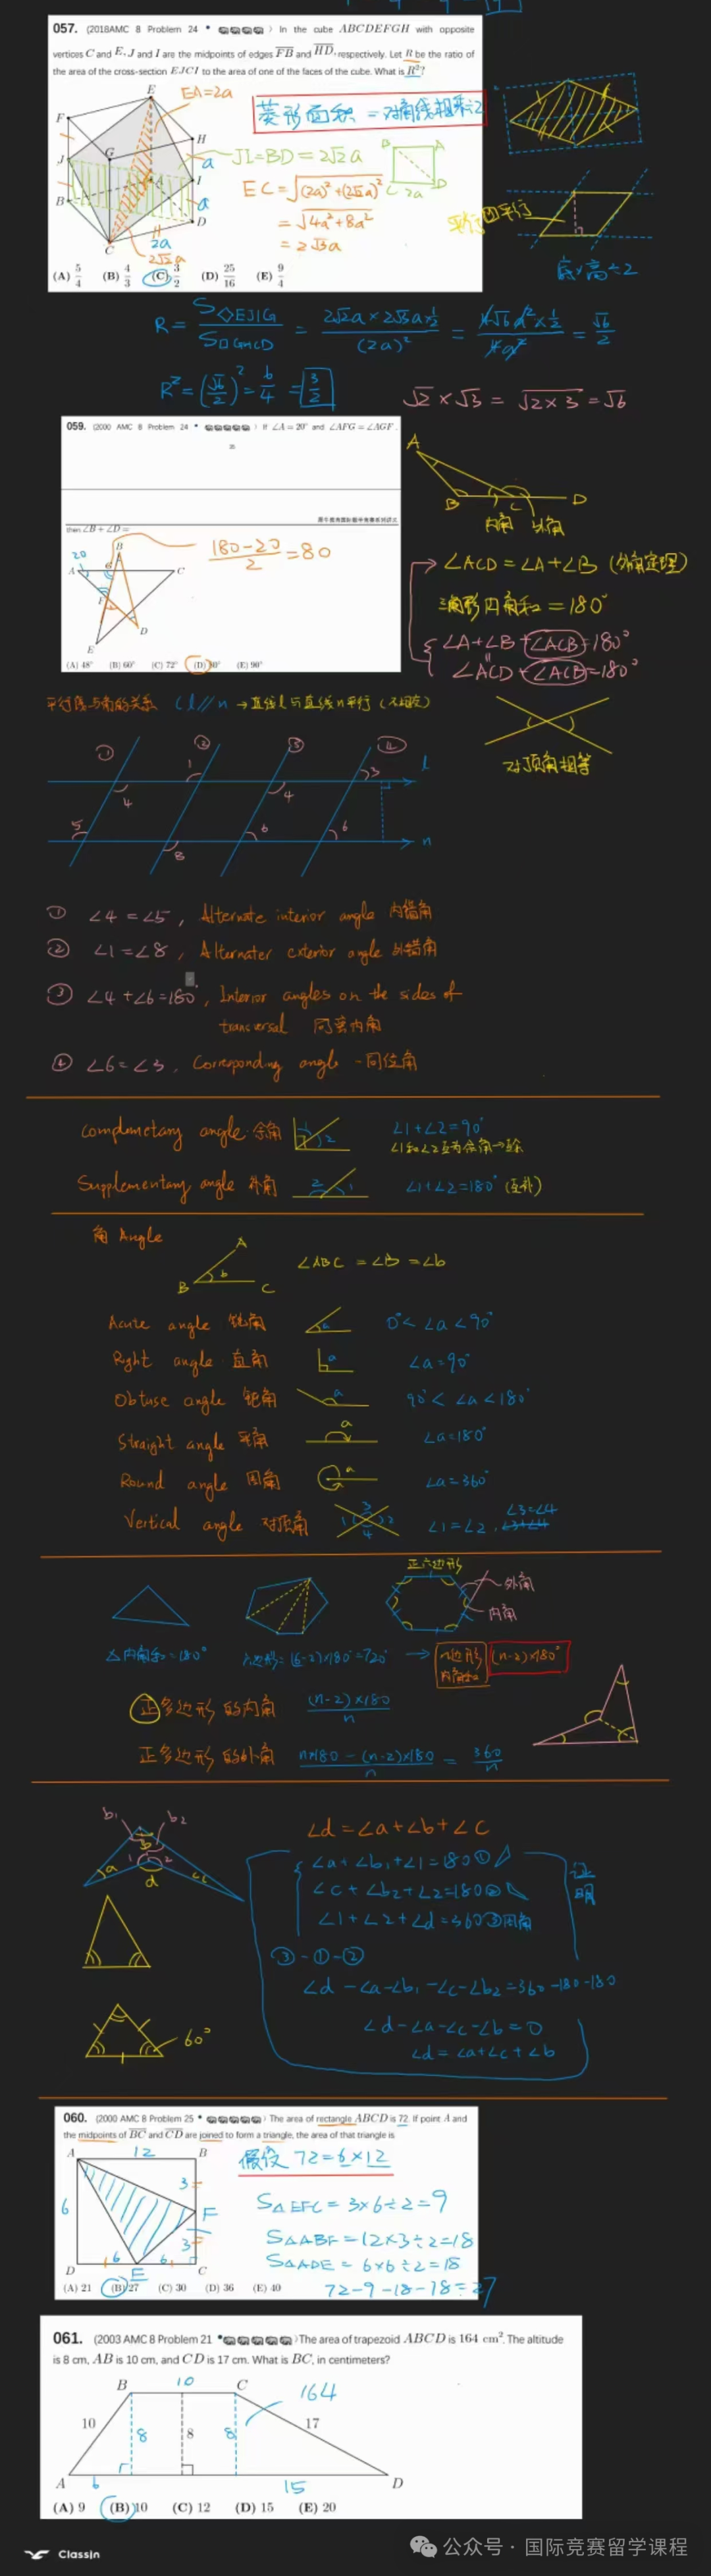 057. (2018AMC 8 Problem 24 • ) In the cube ABCDEFGH with opposite
vertices C and E, J and I are the midpoints of edges FB and HD, respectively. Let R be the ratio of
the area of the cross-section EJCI to the area of one of the faces of the cube. What is R²?
EA=2a
菱形面积 = 对角线相乘÷2
E
F
H
G
J
I
B
D
C
a
a
2a
2√2a
JI=BD=2√2a
B
A
C
D
2a
EC=√(2a)²+(2√2a)²
=√4a²+8a²
=2√3a
底×高÷2
(A) 5/4 (B) 4/3 (C) 3/2 (D) 25/16 (E) 9/4
R = S◇EJIG / S□GHCD = 2√2a×2√3a×1/2 / (2a)² = 4√6a²×1/2 / 4a² = √6/2
R²=(√6/2)²=6/4=3/2
√2×√3=√2×3=√6
059. (2000 AMC 8 Problem 24 • ) If ∠A = 20° and ∠AFG = ∠AGF,
then ∠B + ∠D =
180-20/2=80
20
B
A
G
C
F
D
E
(A) 48° (B) 60° (C) 72° (D) 80° (E) 90°
A
B
C
D
内角 外角
∠ACD=∠A+∠B (外角定理)
三角形内角和=180°
∠A+∠B+∠ACB=180°
∠ACD+∠ACB=180°
对顶角相等
平行线与角的关系 (l//n → 直线l与直线n平行(不相交)
① ② ③ ④
1 3 l
4 4
5 6 6 n
8
① ∠4=∠5, Alternate interior angle 内错角
② ∠1=∠8, Alternater exterior angle 外错角
③ ∠4+∠6=180°, Interior angles on the sides of
transversal 同旁内角
④ ∠6=∠3, Corresponding angle - 同位角
Complemetary angle 余角 1 2 ∠1+∠2=90°
∠1和∠2互为余角→互余
Supplementary angle 补角 2 1 ∠1+∠2=180° (互补)
角 Angle
A
B b C
∠ABC=∠B=∠b
Acute angle 锐角 a 0°<∠a<90°
Right angle 直角 a ∠a=90°
Obtuse angle 钝角 a 90°<∠a<180°
Straight angle 平角 a ∠a=180°
Round angle 周角 a ∠a=360°
Vertical angle 对顶角 1 3 2 4 ∠1=∠2, ∠3=∠4
正六边形
外角
内角
△内角和=180°
六边形=(6-2)×180°=720°
→ n边形内角和 (n-2)×180°
正多边形的内角 (n-2)×180/n
正多边形的外角 n×180-(n-2)×180/n = 360/n
b₁ b₂
b
a 1 2 c
d
∠d=∠a+∠b+∠c
∠a+∠b₁+∠1=180 ①
∠c+∠b₂+∠2=180 ②
∠1+∠2+∠d=360 ③ 周角
证明
③-①-②
∠d-∠a-∠b₁-∠c-∠b₂=360-180-180
∠d-∠a-∠c-∠b=0
∠d=∠a+∠c+∠b
60°
060. (2000 AMC 8 Problem 25 • ) The area of rectangle ABCD is 72. If point A and
the midpoints of BC and CD are joined to form a triangle, the area of that triangle is
A 12 B
6
3
F
3
D 6 E 6 C
假设 72=6×12
S△EFC=3×6÷2=9
S△ABF=12×3÷2=18
S△ADE=6×6÷2=18
72-9-18-18=27
(A) 21 (B) 27 (C) 30 (D) 36 (E) 40
061. (2003 AMC 8 Problem 21 • ) The area of trapezoid ABCD is 164 cm². The altitude
is 8 cm, AB is 10 cm, and CD is 17 cm. What is BC, in centimeters?
B 10 C
164
10 8 8 8 17
A 6 15 D
(A) 9 (B) 10 (C) 12 (D) 15 (E) 20
ClassIn
公众号 · 国际竞赛留学课程